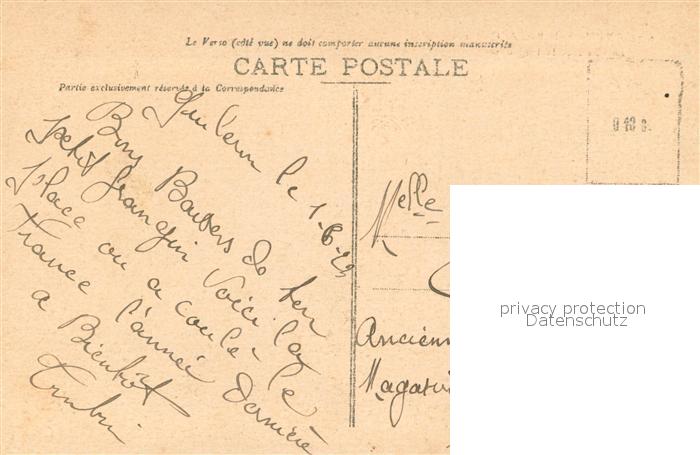 Le Verso (côté vue) ne doit comporter aucune inscription manuscrite
CARTE POSTALE
Partie exclusivement réservée à la Correspondance
le 1-6-23
Bons Baisers de ton
petit frangin voici la
place ou a coulé le
France l'année dernière
a Bientôt
Melle
M
Ancienn
Magasin
privacy protection
Datenschutz